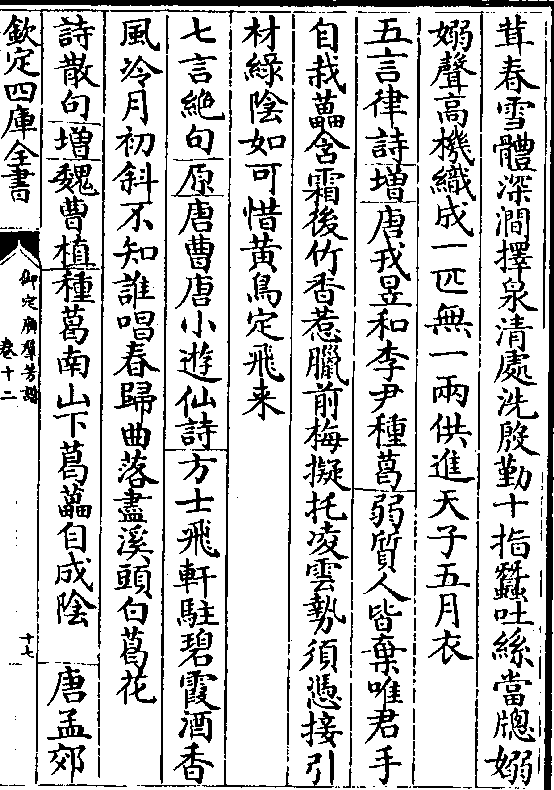 茸春雪體深澗擇泉清處洗殷勤十指蠶吐絲當牕嫋
嫋聲高機織成一匹無一兩供進天子五月衣
五言律詩增唐戎昱和李尹種葛弱質人皆棄唯君手
自栽藟含霜後竹香惹臘前梅擬托凌雲勢須憑接引
材綠陰如可惜黃鳥定飛来
七言絶句原唐曹唐小遊仙詩方士飛軒駐碧霞酒香
風冷月初斜不知誰唱春歸曲落盡溪頭白葛花
詩散句增魏曹植種葛南山下葛藟自成陰 唐孟郊
欽定四庫全書
御定廣羣芳譜
卷十二
十七